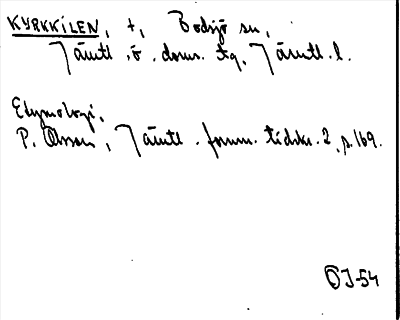 KYRKKILEN, t, Bodsjö sn,
Jämtl. ö. doms. tg, Jämtl. l.
Etymologi.
P. Olsson, Jämtl. fornm. tidskr. 2, s. 169.
ÖJ-54